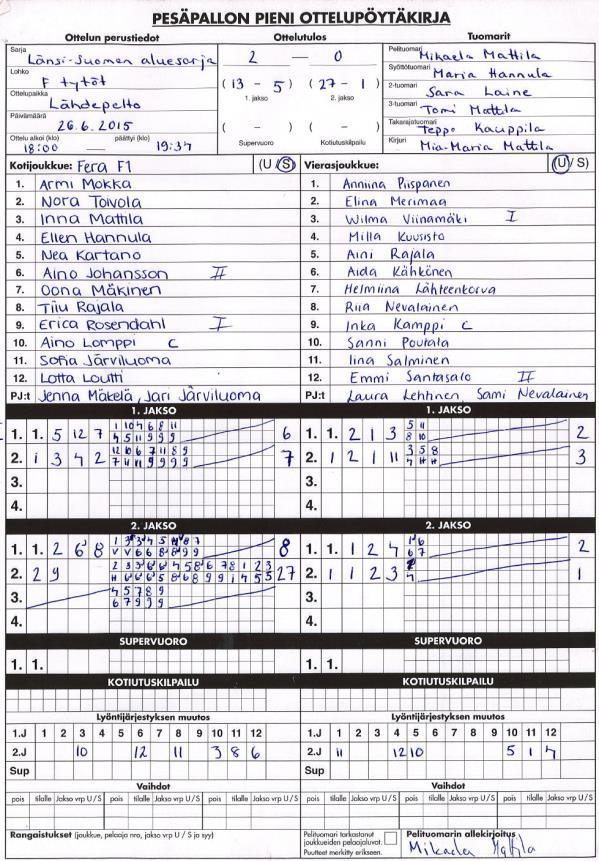 PESÄPALLON PIENI OTTELUPÖYTÄKIRJA
Ottelun perustiedot Ottelutulos Tuomarit
Sarja Länsi-Suomen aluesarja
Lohko F tytöt
Ottelupaikka Lähdepelto
Päivämäärä 26.6.2015
Ottelu alkoi (klo) 18:00 — päättyi (klo) 19:37
2 — 0
(13 – 5) (27 – 1)
1. jakso 2. jakso
( – ) ( – )
Supervuoro Kotiutuskilpailu
Pelituomari Mikaela Mattila
Syöttötuomari Maria Hannula
2-tuomari Sara Laine
3-tuomari Tomi Mattila
Takarajatuomari Teppo Kauppila
Kirjuri Mia-Maria Mattila
Kotijoukkue: Fera F1 (U / S)
1. Armi Mokka
2. Nora Toivola
3. Inna Mattila
4. Ellen Hannula
5. Nea Kartano
6. Aino Johansson II
7. Oona Mäkinen
8. Tiiu Rajala
9. Erica Rosendahl I
10. Aino Lomppi C
11. Sofia Järviluoma
12. Lotta Loutti
PJ:t Jenna Mäkelä, Jari Järviluoma
Vierasjoukkue: (U / S)
1. Anniina Piispanen
2. Elina Merimaa
3. Wilma Viinamäki I
4. Milla Kuusisto
5. Aini Rajala
6. Aida Kähkönen
7. Helmiina Lähteenkorva
8. Riia Nevalainen
9. Inka Kamppi C
10. Sanni Poutala
11. Iina Salminen
12. Emmi Santasalo II
PJ:t Laura Lehtinen, Sami Nevalainen
1. JAKSO 1. JAKSO
1. 1. 5 12 7 1 10 4 6 8 11 6
4 5 11 9 9 9
2. 1 3 4 2 12 10 6 7 11 8 9 7
7 11 11 9 9 9 9
3.
4.
1. 1. 2 1 3 5 11 2
8 10
2. 1 2 1 11 3 5 8 3
3.
4.
2. JAKSO 2. JAKSO
1. 1. 2 6 8 8
2. 2 9 27
3. 4 5 7 8 9
6 7 9 9 9
4.
1. 1. 1 2 4 2
2. 1 1 2 3 1
3.
4.
SUPERVUORO SUPERVUORO
1. 1. 1. 1.
KOTIUTUSKILPAILU KOTIUTUSKILPAILU
Lyöntijärjestyksen muutos Lyöntijärjestyksen muutos
1.J 1 2 3 4 5 6 7 8 9 10 11 12 1.J 1 2 3 4 5 6 7 8 9 10 11 12
2.J 10 12 11 3 8 6 2.J 11 12 10 5 1 4
Sup Sup
Vaihdot Vaihdot
pois tilalle Jakso vrp U / S pois tilalle Jakso vrp U / S pois tilalle Jakso vrp U / S pois tilalle Jakso vrp U / S
Rangaistukset (joukkue, pelaaja nro, jakso vrp U / S ja syy)
Pelituomari tarkastanut joukkueiden pelaajaluvat.
Puutteet merkitty erikseen.
Pelituomarin allekirjoitus
Mikaela Mattila